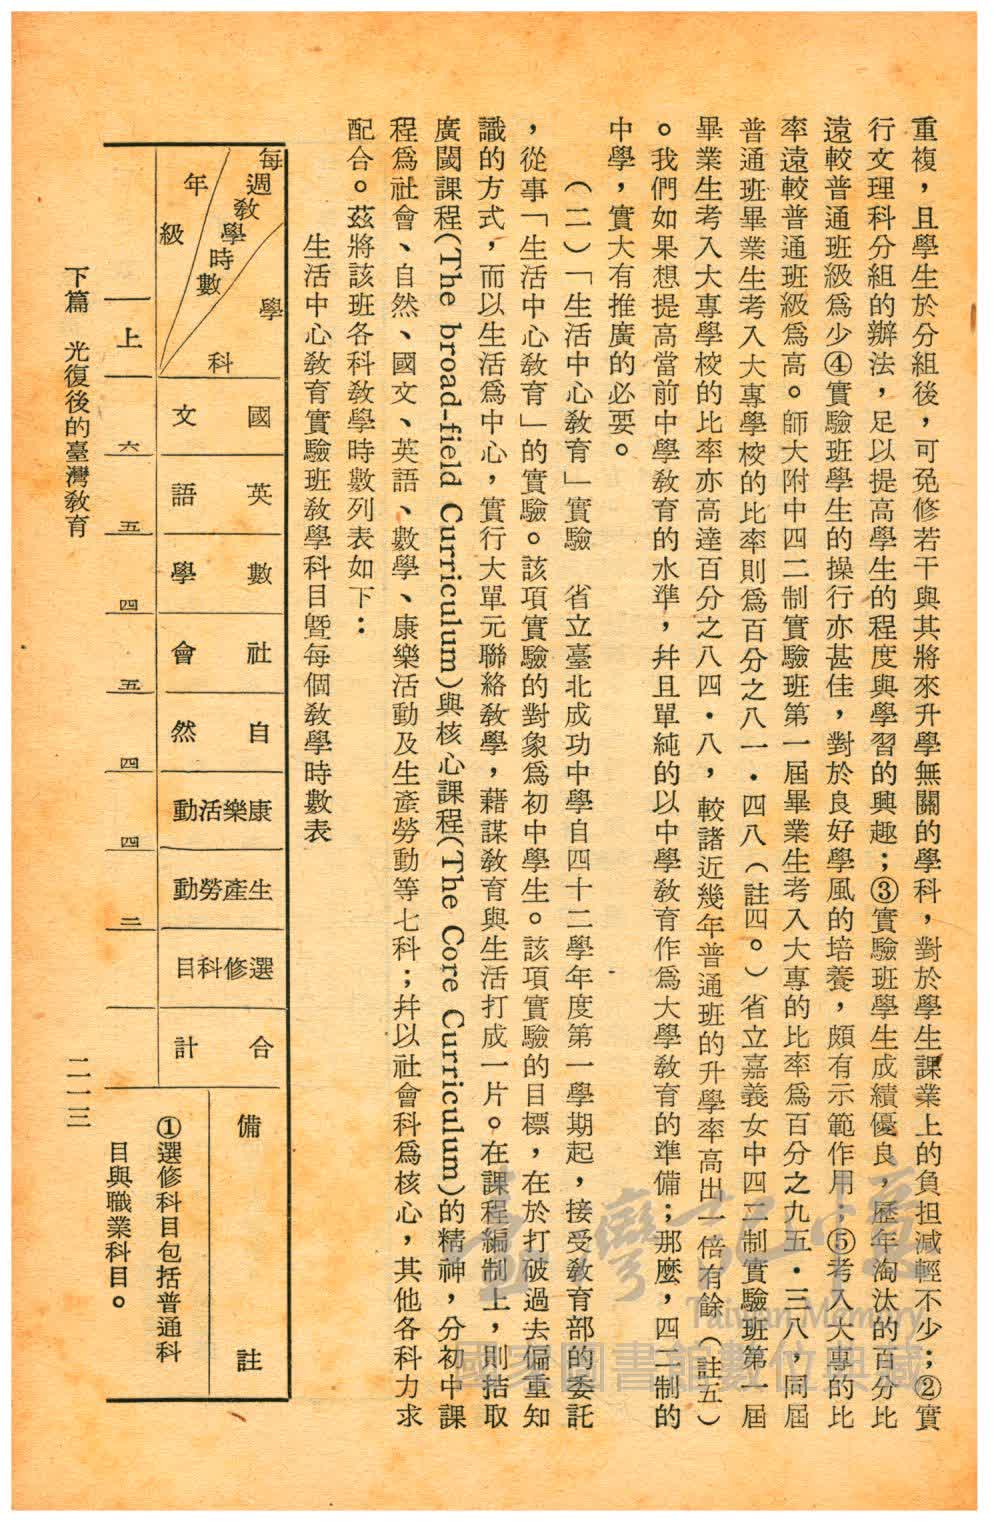 重複，且學生於分組後，可免修若干與其將來升學無關的學科，對於學生課業上的負担減輕不少；②實
行文理科分組的辦法，足以提高學生的程度與學習的興趣；③實驗班學生成績優良，歷年淘汰的百分比
遠較普通班級爲少④實驗班學生的操行亦甚佳，對於良好學風的培養，頗有示範作用；⑤考入大專的比
率遠較普通班級爲高。師大附中四二制實驗班第一屆畢業生考入大專的比率爲百分之九五．三八，同屆
普通班畢業生考入大專學校的比率則爲百分之八一．四八（註四。）省立嘉義女中四二制實驗班第一屆
畢業生考入大專學校的比率亦高達百分之八四．八，較諸近幾年普通班的升學率高出一倍有餘（註五）
。我們如果想提高當前中學教育的水準，幷且單純的以中學教育作爲大學教育的準備；那麼，四二制的
中學，實大有推廣的必要。
（二）「生活中心教育」實驗　省立臺北成功中學自四十二學年度第一學期起，接受教育部的委託
，從事「生活中心教育」的實驗。該項實驗的對象爲初中學生。該項實驗的目標，在於打破過去偏重知
識的方式，而以生活爲中心，實行大單元聯絡教學，藉謀教育與生活打成一片。在課程編制上，則括取
廣闊課程(The broad-field Curriculum)與核心課程(The Core Curriculum)的精神，分初中課
程爲社會、自然、國文、英語、數學、康樂活動及生產勞動等七科；幷以社會科爲核心，其他各科力求
配合。茲將該班各科教學時數列表如下：
生活中心教育實驗班教學科目暨每個教學時數表
每週教學時數
學科
年級
國文
英語
數學
社會
自然
康樂活動
生產勞動
選修科目
合計
備註
一上
六
五
四
五
四
四
二
①選修科目包括普通科
目與職業科目。
下篇　光復後的臺灣教育
二一三
臺灣記憶
Taiwan Memory
國家圖書館數位典藏